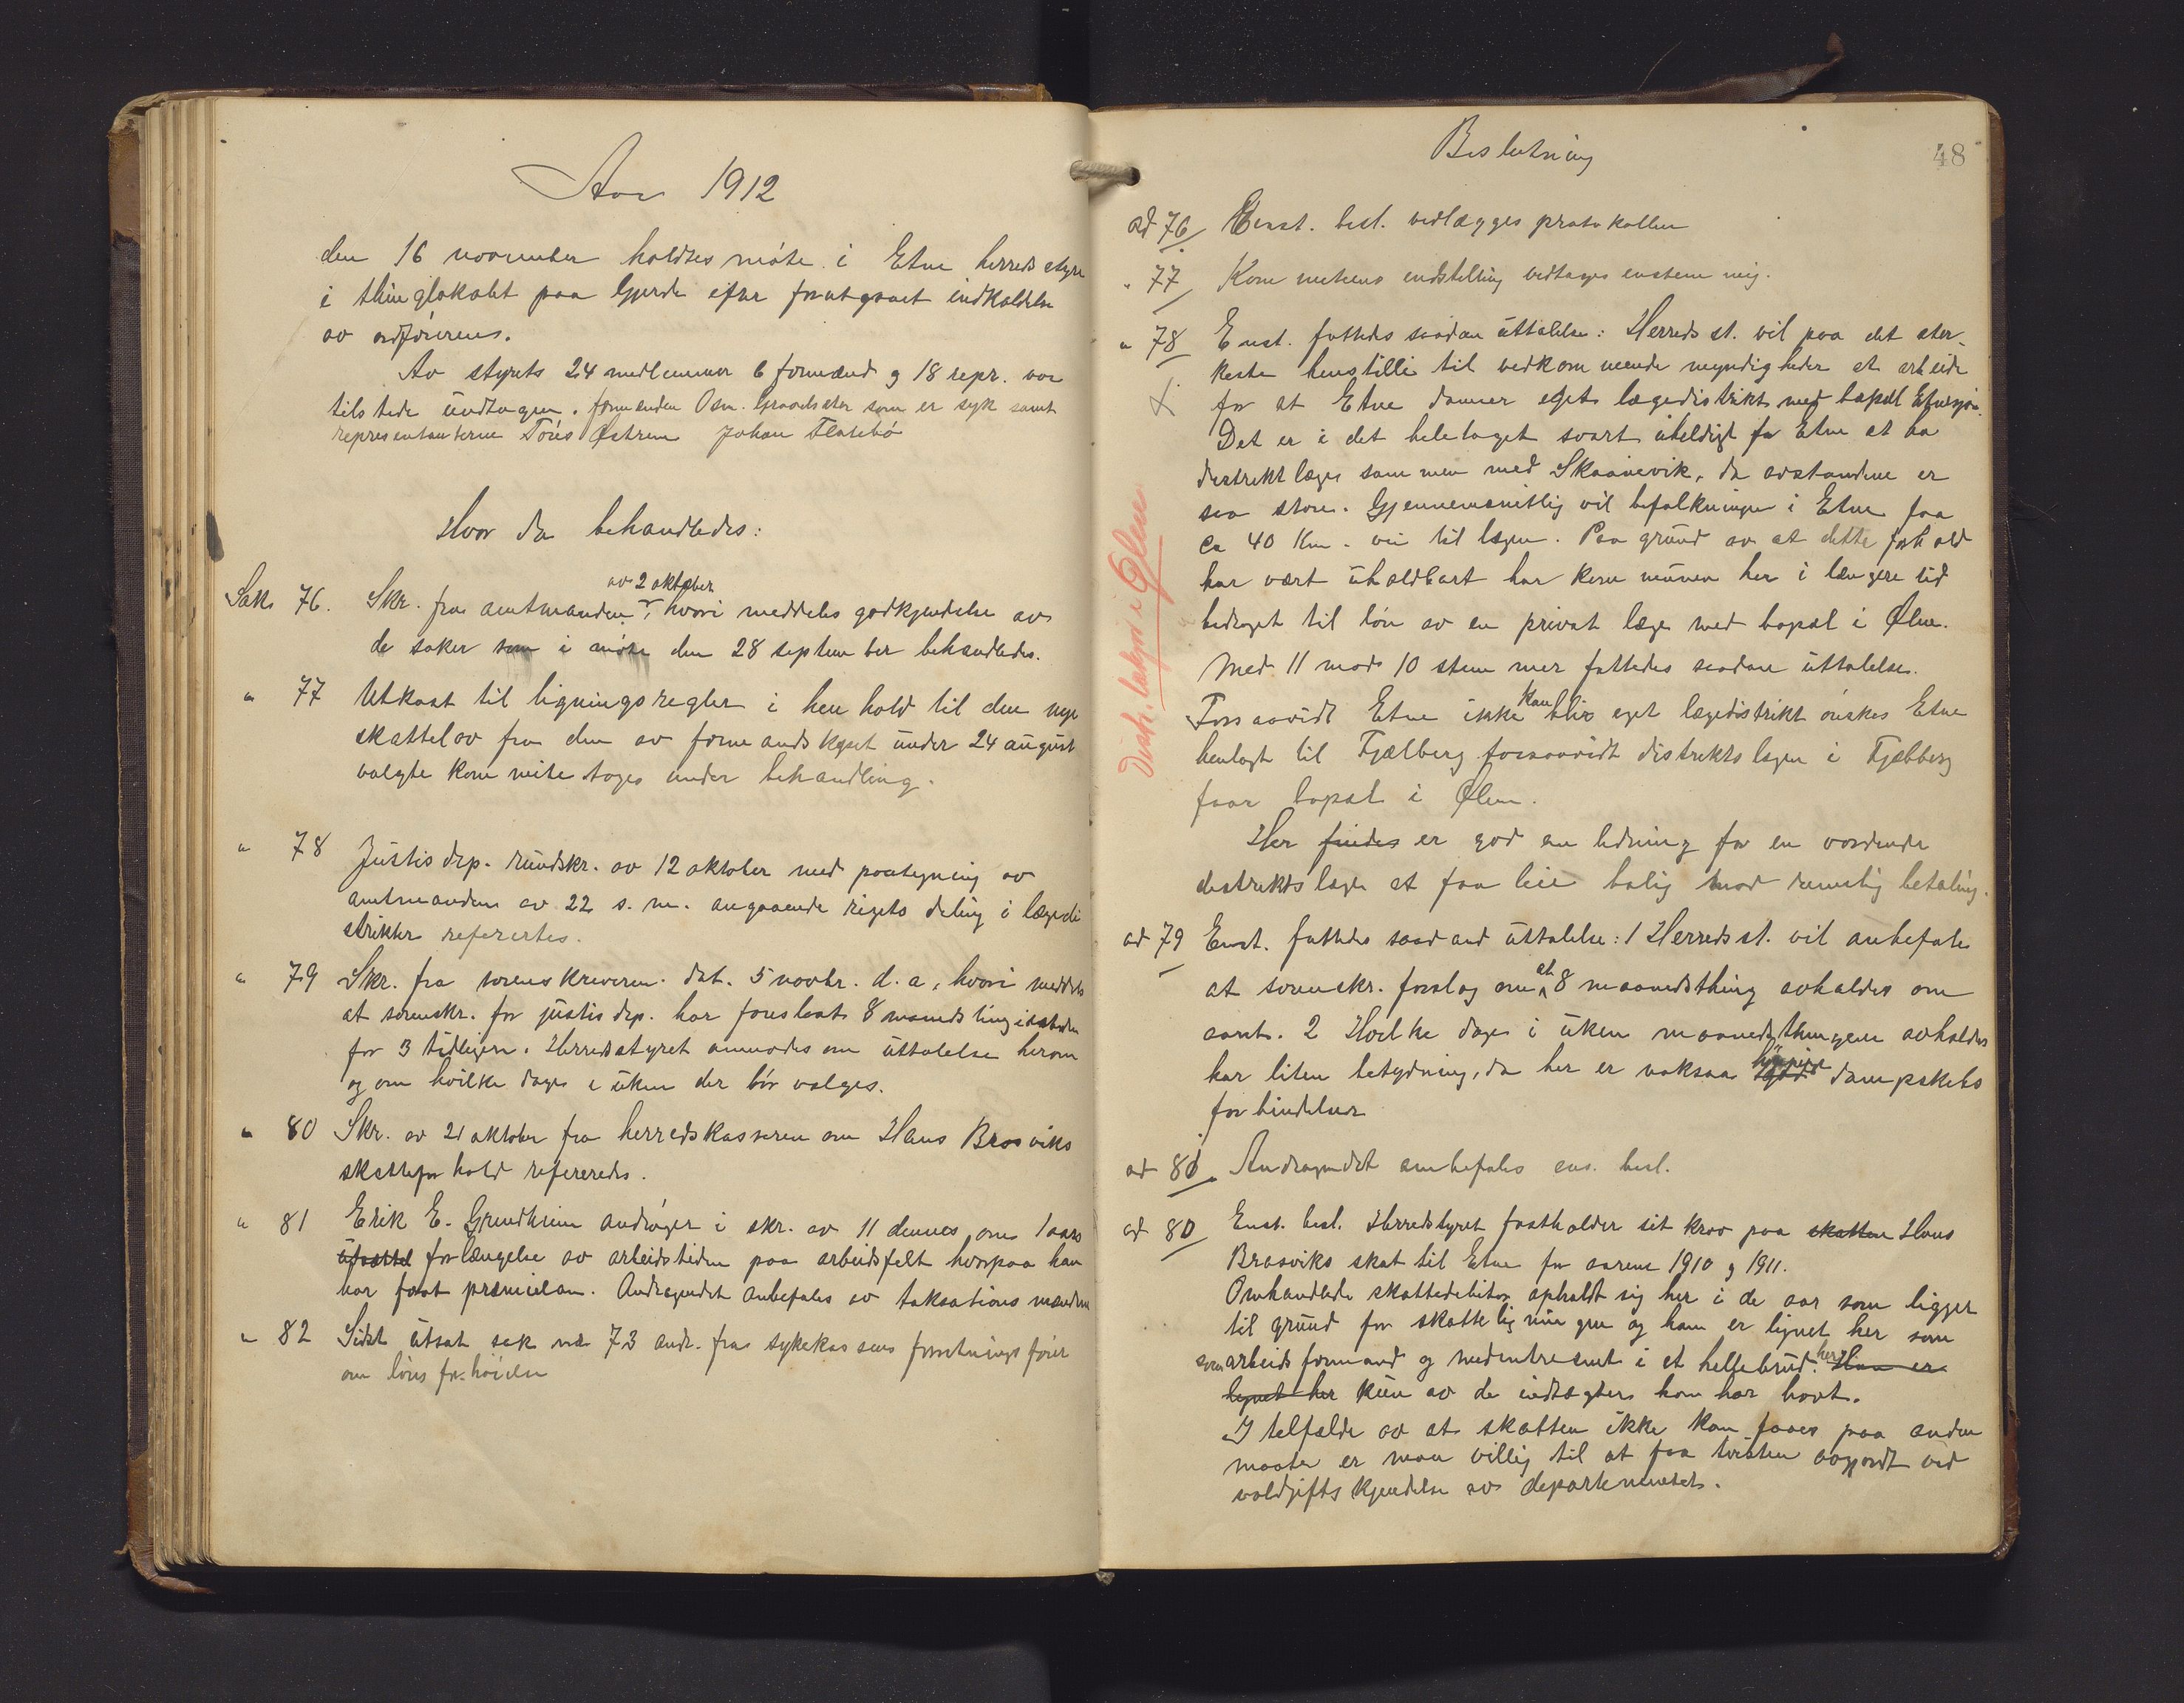 Aar 1912
den 16 november holdtes møte i Etne herredsstyre
i thinglokalet paa Gjerde efter forutgaaet indkaldelse
av ordføreren.
Av styrets 24 medlemmer 6 formænd og 18 repr. var
tilstede undtagen. formanden Osm. Gravelsæter som er syk samt
representanterne Tøres Østrem Johan Flatebø
Hvor da behandledes:
Sak 76. Skr. fra amtmanden av 2 oktober, hvori meddeles godkjendelse av
de saker som i møte den 28 september behandledes.
" 77 Utkast til ligningsregler i henhold til den nye
skattelov fra den av formandskapet under 24 august
valgte kommite toges under behandling.
" 78 Justisdep. rundskr. av 12 oktober med paategning av
amtmanden av 22 s. m. angaaende rigets deling i lægedi
strikter refereertes.
" 79 Skr. fra sorenskriveren. dat. 5 novbr. d. a, hvori meddeles
at sorenskr. for justisdep. har foreslaat 8 maanedsting istedenfor
for 3 tidligere. Herredsstyret anmodes om uttalelse herom
og om hvilke dage i uken der bør valges.
" 80 Skr. av 21 oktober fra herredskassereren om Hans Brasviks
skatteforhold refereredes.
" 81 Erik E. Grindheim andrager i skr. av 11 dennes om 1 aars
utsættel forlængelse av arbeidstiden paa arbeidsfelt hvorpaa han
har faat præmielaan. Andragendet anbefales av taksationsmændene
" 82 Sidst utsat sak no 73 andr. fra sykekassens forretningsfører
om lønsforhøielse
48
Beslutning
ad 76 Enst. besl. vedlægges protokollen
" 77 Kommiteens indstilling vedtages enstemmig.
" 78 Enst. fattedes saadan uttalelse: Herredsst. vil paa det ster-
keste henstille til vedkommende myndigheder at arbeide
for at Etne danner eget lægedistrikt med bopæl Etnesjøen.
Det er i det heletaget svært uheldigt for Etne at ha
distriktlæge sammen med Skaanevik, da avstandene er
saa store. Gjennemsnitlig vil befolkningen i Etne faa
ca 40 Km. vei til lægen. Paa grund av at dette forhold
har vært uholdbart har kommunen her i længere tid
bedraget til løn av en privat læge med bopæl i Ølen.
Med 11 mod 10 stemmer fattedes saadan uttalelse.
Forsaavidt Etne ikke kan bliv eget lægedistrikt ønskes Etne
henlagt til Fjælberg forsaavidt distriktslægen i Fjælberg
faar bopæl i Ølen.
Her findes er god anledning for en vordende
distriktslæge at faa leie bolig mod rimelig betaling.
Distr. læge i Ølen
ad 79 Enst. fattedes saadand uttalelse: 1 Herredsst. vil anbefale
at sorenskr. forslag om at 8 maanedsthing avholdes om
aaret. 2 Hvilke dage i uken maanedsthingene avholdes
har liten betydning, da her er noksaa dampskibs
forbindelser
ad 81. Andragendet anbefales ens. besl.
ad 80 Enst. besl. Herredstyret fastholder sit krav paa skatten Hans
Brasviks skat til Etne for aarene 1910 og 1911.
Omhandlede skattedebitor opholdt sig her i de aar som ligger
til grund for skatteligningen og han er lignet her som
som arbeidsformand og medintresent i et hellebrud. her Han er
lignet her kun av de indtægter han har havt.
I telfælde av at skatten ikke kan faaes paa anden
maate er man villig til at faa tvisten avgjordt ved
voldgiftskjendelse av departementet.